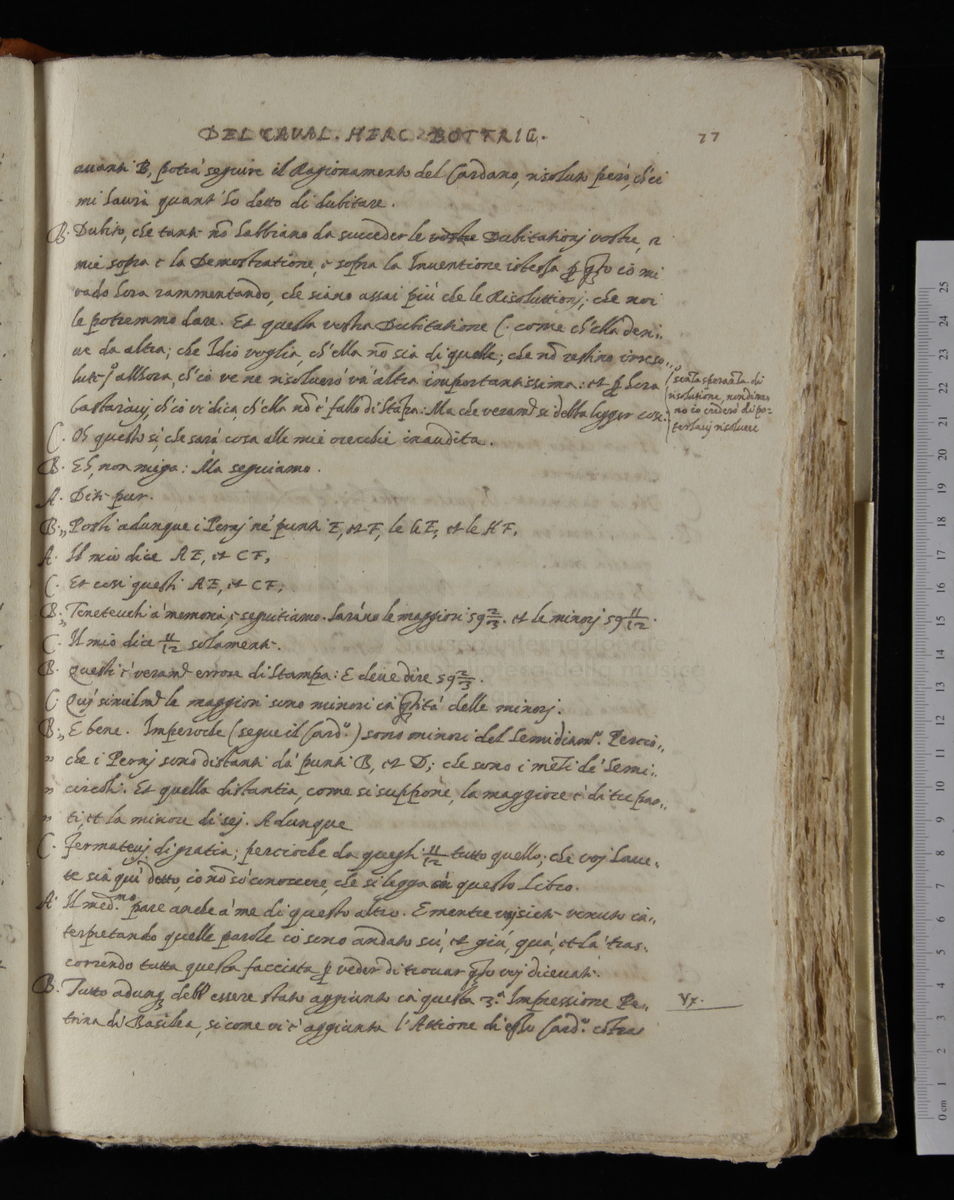 DEL CAVAL. HERC. BOTTRIG.
77
auanti B, potrà seguire il Ragionamento del Cardano, risoluto però, ch'ei
mi haurà quant' hò detto di dubitare.
B. Dubito, che tanti nō habbiano da succeder le vostre Dubitationj vostre, et
mie sopra è la Demostratione, è sopra la Inuentione istessa
vado hora rammentando, che siano assai più che le Risolutionj; che noi
le potremmo dare. Et questa vostra Dubitatione (. come ch'ella deri„
ue da altra; che Idio voglia, ch'ella nō sia di quelle; che nō restino irreso„
lute.) allhora, ch'io ve ne risoluerò vn' altra importantissima: et p hora
bastarauj, ch'io vi dica, ch'ella nō è fallo di stāpa: Ma che veramte si debba legger così.
senza speranza di
risolutione, nondime
no io crederò di po-
teruauj risoluere
C. Oh questo sì, che sarà cosa alle mie orecchie inaudita.
B. Eh, non miga: Ma seguiamo.
A. Diti pur.
B.„ Posti adunque i Pernj né punti E, et F, le GE, et le HF,
A. Il mio dice AE, et CF,
C. Et così questi AE, et CF,
B.„ Teneteuelo à memoria: è seguitiamo. Sarāno le maggiori 59 2/3. et le minorj 59 11/12.
C. Il mio dice 11/12 solamente.
B. Questi è veramte errore di stampa: E deue dire 59 2/3.
C. Quj similmte le maggiori sono minori in qtità delle minorj.
B.„ E bene. Imperoche (segue il Card.o) sono minori del Semidiamo. Percio„
„ che i Pernj sono distanti dà punti B, et D; che sono i mezi de' Semi:„
„ circoli. Et quella distantia, come si suppone, la maggiore è di tre par„
„ ti, et la minore di sej. Adunque
C. Fermateuj di gratia; percioche da quegli 11/12 tutto quello; che voj haue„
te sin quì detto, io nō sò conoscere, che si legga in questo libro.
A. Il medmo pare anche à me di questo altro. E mentre voj siete venuto in„
terpretando quelle parole io sono andato sù, et giù, quà, et là tras„
correndo tutta questa facciata p veder di trouar qto voj diceuati.
B. Tutto adunq debbe essere stato aggiunto in questa 3.a Impressione Pe„
trina di Basilea, sì come vi è aggiunta l'Attione di esso Card.o cōtra